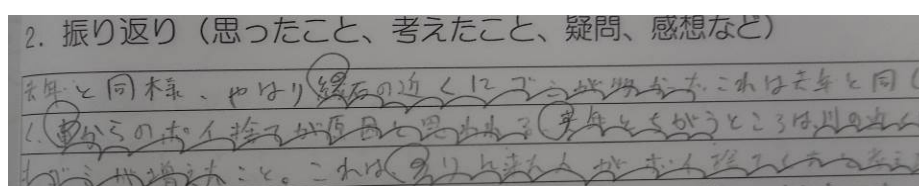 2. 振り返り（思ったこと、考えたこと、疑問、感想など）
去年と同様、やはり縁石の近くにゴミが多かった これは去年と同じ
く、車からのポイ捨てが原因と思われる 去年とちがうところは川の近く
ゴミが増えたこと。これは、釣りに来た人がポイ捨てしたと考え